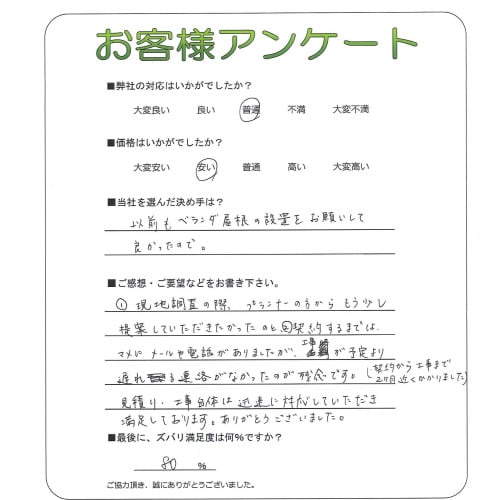 お客様アンケート
■弊社の対応はいかがでしたか？
大変良い 良い 普通 不満 大変不満
■価格はいかがでしたか？
大変安い 安い 普通 高い 大変高い
■当社を選んだ決め手は？
以前もベランダ屋根の設置をお願いして
良かったので。
■ご感想・ご要望などをお書き下さい。
①現地調査の際、プランナーの方からもう少し
提案していただきたかったのと②契約するまでは、
マメにメールや電話がありましたが、工事が予定より
遅れる連絡がなかったのが残念です。(契約から工事まで
2ヶ月近くかかりました)
見積り、工事自体は迅速に対応していただき
満足しております。ありがとうございました。
■最後に、ズバリ満足度は何％ですか？
80 %
ご協力頂き、誠にありがとうございました。